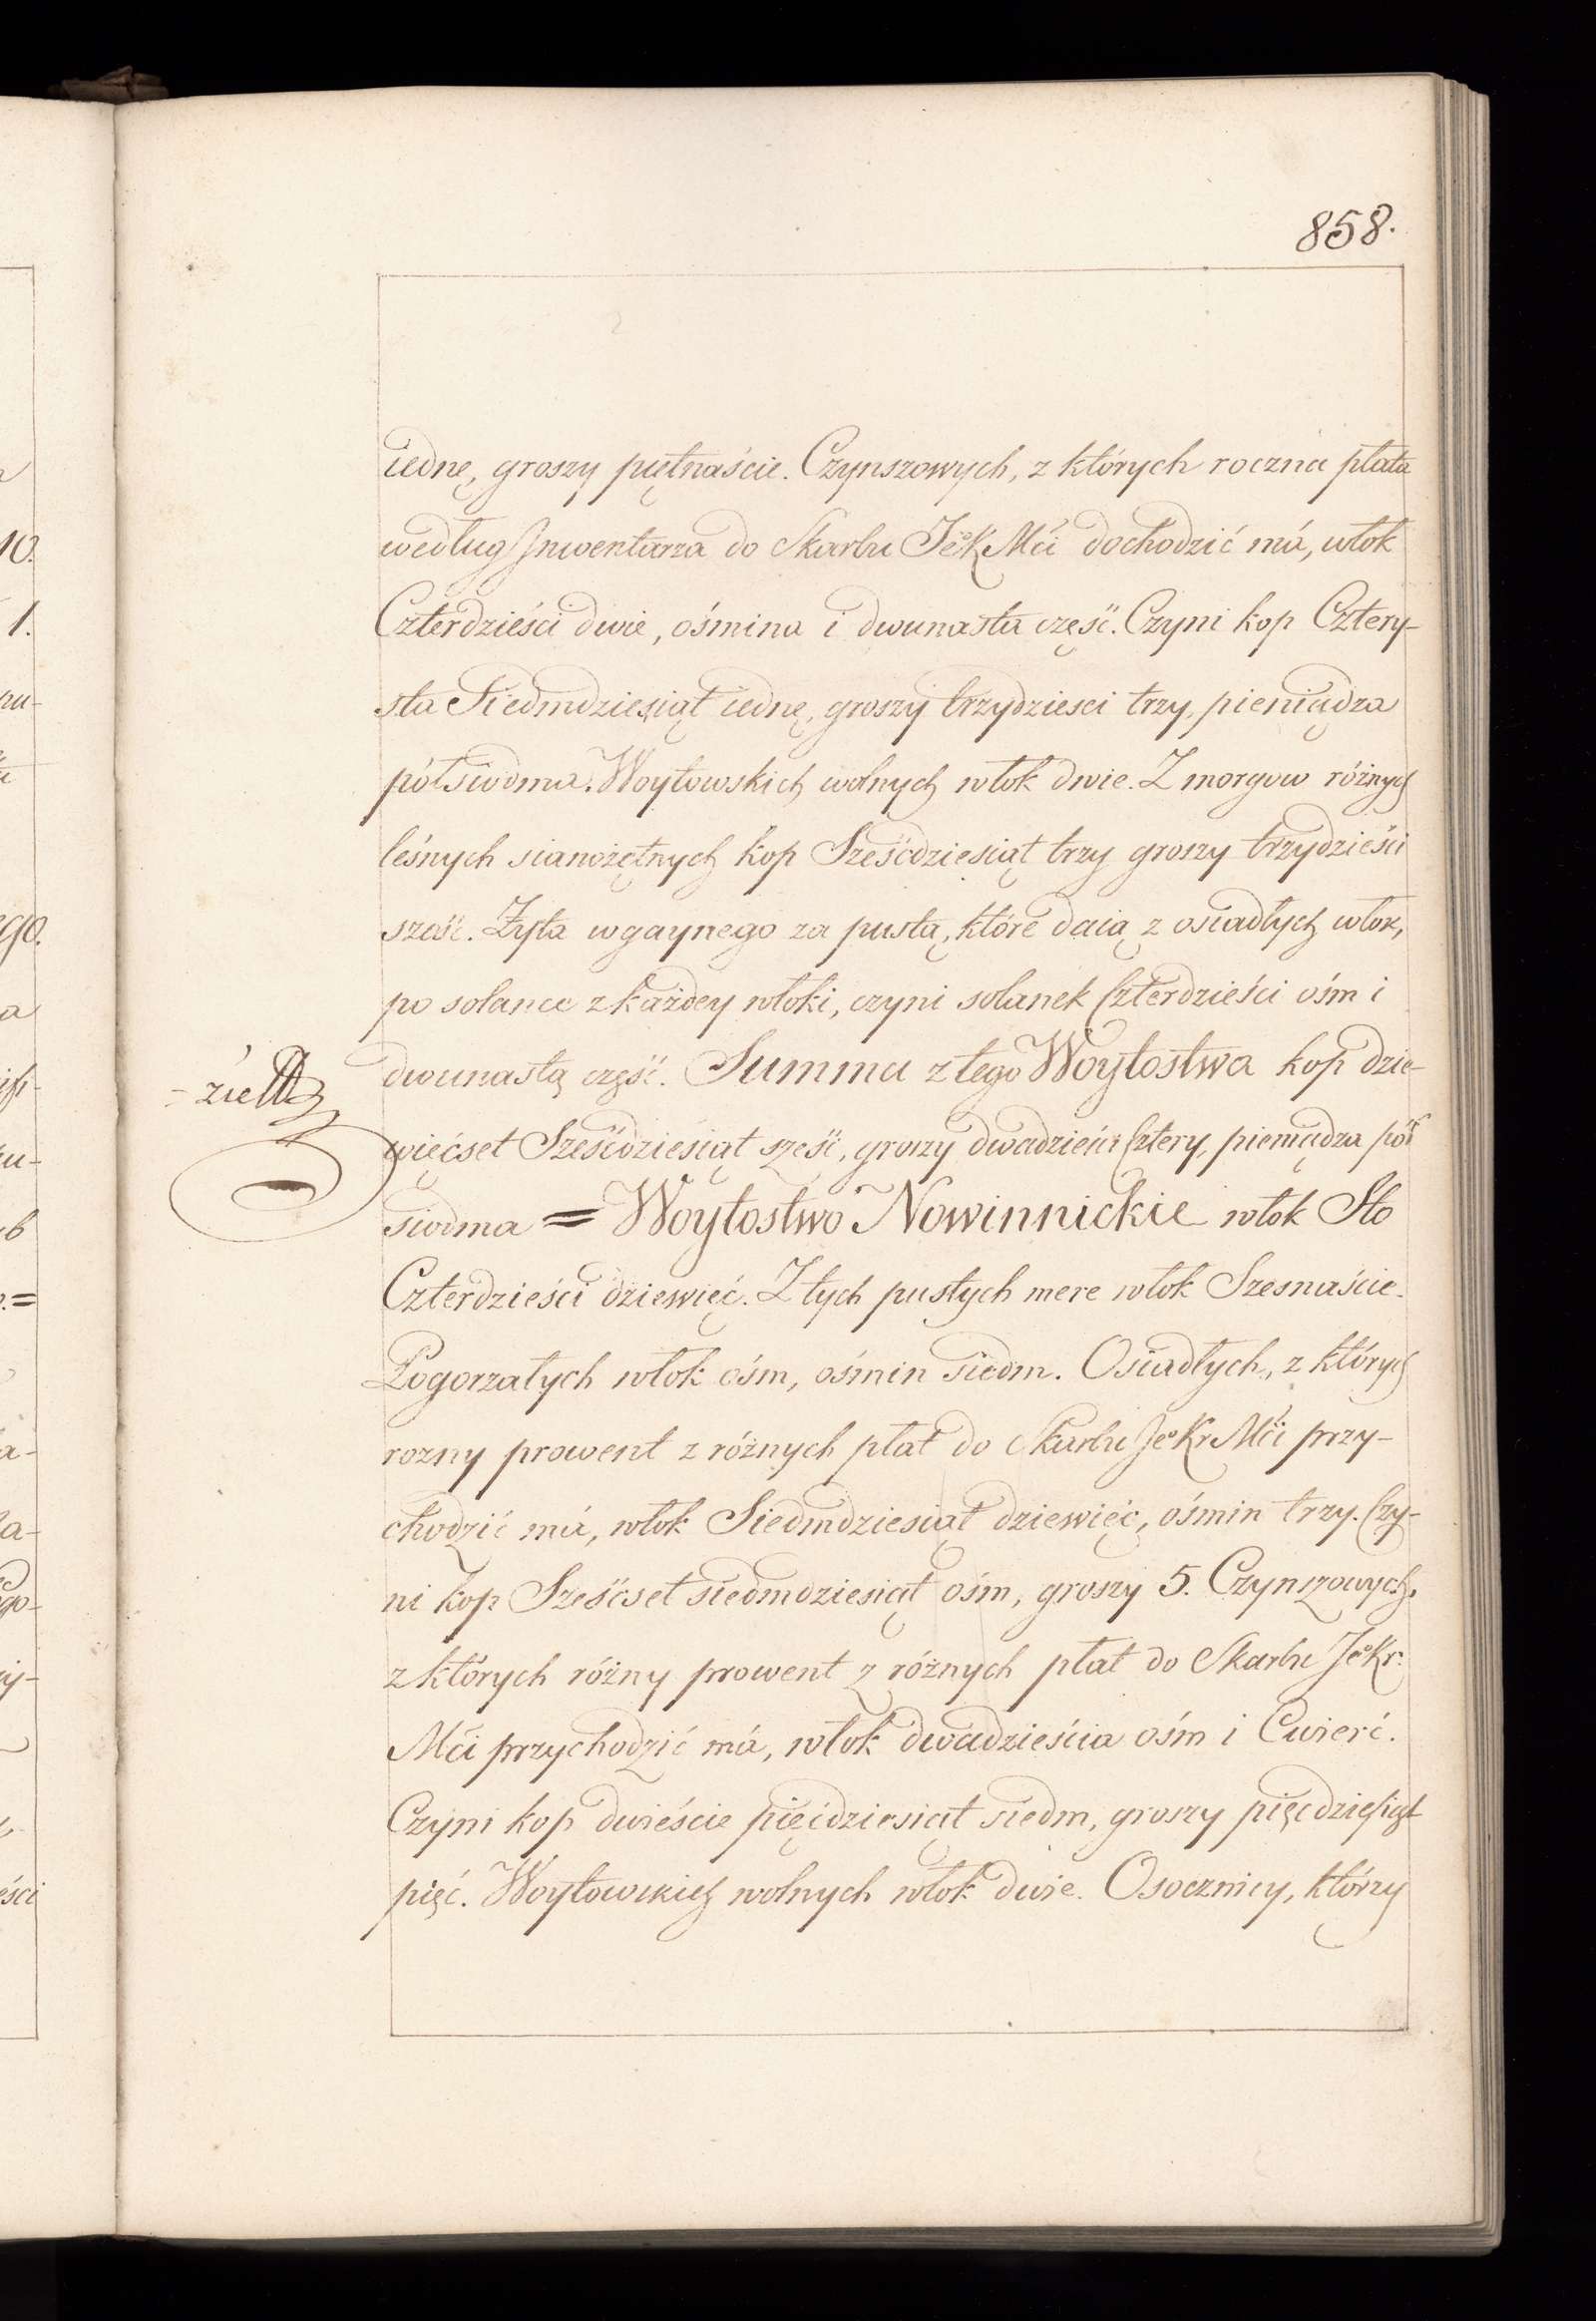 858.
iednę, groszy piętnaście. Czynszowych, z których roczna płata
według Inwentarza do Skarbu JeoK Mći dochodzić má, włok
Czterdzieści dwie, ośmina i dwunasta część. Czyni kop Cztery-
sta Siedmdziesiąt iednę, groszy trzydziesci trzy, pieniądza
pół siodma. Woytowskich wolnych włok dwie. Z morgow różnych
leśnych sianożętnych kop Sześćdziesiąt trzy groszy trzydzieści
sześć. Żyta wgaynego za pustą, które daią z osiadłych włok,
po solance z każdey włoki, czyni solanek Czterdzieści ośm i
dwunastą część. Summa z tego Woytostwa kop dzie-
więćset Sześćdziesiąt sześć, groszy dwadzieścia Cztery, pieniądza pół
siodma = Woytostwo Nowinnickie włok Sto
Czterdzieści dziewięć. Z tych pustych mere włok Szesnaście.
Pogorzałych włok ośm, ośmin siedm. Osiadłych, z których
rozny prowent z różnych płat do Skarbu JeoKr Mći przy-
chodzić má, włok Siedmdziesiąt dziewięć, ośmin trzy. Czy-
ni kop Sześćset siedmdziesiąt ośm, groszy 5. Czynszowych,
z których różny prowent z różnych płat do Skarbu JeoKr.
Mći przychodzić má, włok dwadzieścia ośm i Cwierć.
Czyni kop dwieście pięćdziesiąt siedm, groszy pięćdziesiąt
pięć. Woytowskich wolnych włok dwie. Osocznicy, którzy